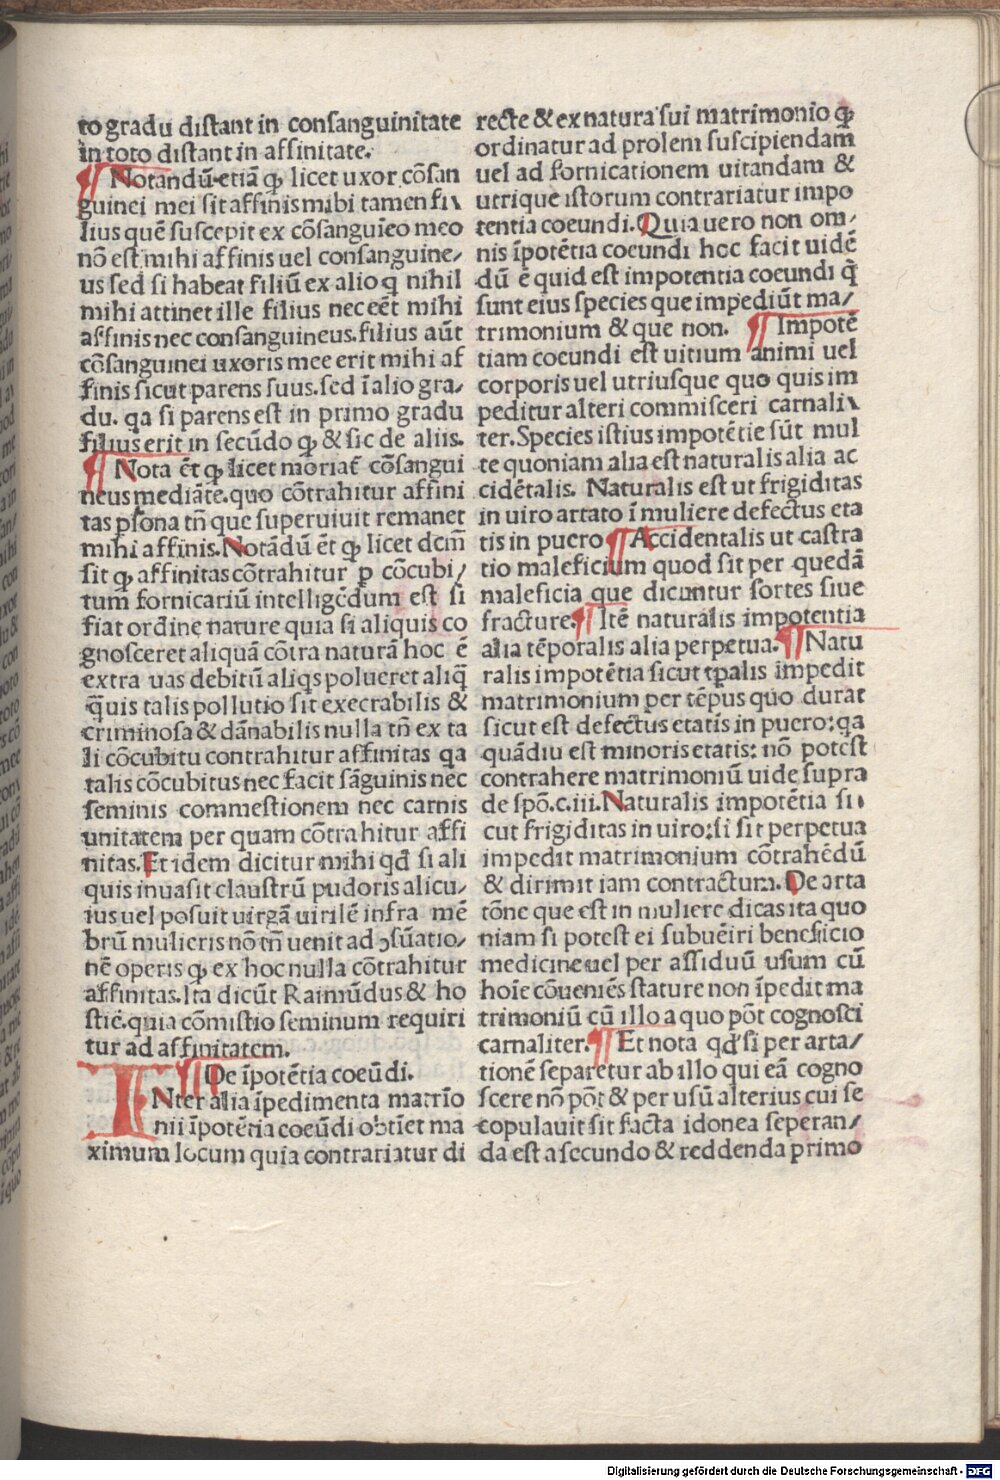 to gradu distant in consanguinitate
in toto distant in affinitate.
¶ Notandū etiā ꝙ licet uxor cōsan
guinei mei sit affinis mihi tamen fi
lius quē suscepit ex cōsanguīeo meo
nō est mihi affinis uel consanguine/
us sed si habeat filiū ex alio q nihil
mihi attinet ille filius nec eēt mihi
affinis nec consanguineus. filius aūt
cōsanguinei uxoris mee erit mihi af
finis sicut parens suus. sed ī alio gra/
du. qa si parens est in primo gradu
filius erit in secūdo ꝙ & sic de aliis.
¶ Nota ēt ꝙ licet moriat̄ cōsangui
neus mediāte. quo cōtrahitur affini
tas psona tn̄ que superuiuit remanet
mihi affinis. Notādū ēt ꝙ licet dcm̄
sit ꝙ affinitas cōtrahitur p cōcubi/
tum fornicariū intelligēdum est si
fiat ordine nature quia si aliquis co
gnosceret aliquā cōtra naturā hoc ē
extra uas debitū aliqs polueret aliq̄
q̄uis talis pollutio sit execrabilis &
criminosa & dānabilis nulla tn̄ ex ta
li cōcubitu contrahitur affinitas qa
talis cōcubitus nec facit sāguinis nec
seminis commestionem nec carnis
unitatem per quam cōtrahitur affi
nitas. Et idem dicitur mihi qd̄ si ali
quis inuasit claustrū pudoris alicu/
ius uel posuit uirgā uirilē infra mē
brū mulieris nō tn̄ uenit ad ɔsūatio/
nē operis ꝙ ex hoc nulla cōtrahitur
affinitas. Ita dicūt Raimūdus & ho
stiē. quia cōmistio seminum requiri
tur ad affinitatem.
¶ De īpotētia coeūdi.
INter alia īpedimenta matrīo
nii īpotētia coeūdi obtīet ma
ximum locum quia contrariatur di
recte & ex natura sui matrimonio ꝙ
ordinatur ad prolem suscipiendam
uel ad fornicationem uitandam &
utrique istorum contrariatur impo
tentia coeundi. Quia uero non om/
nis īpotētia coeundi hoc facit uidē
dū ē quid est impotentia coeundi q̄
sunt eius species que impediūt ma/
trimonium & que non. ¶ Impotē
tiam coeundi est uitium animi uel
corporis uel utriusque quo quis im
peditur alteri commisceri carnali
ter. Species istius impotētie sūt mul
te quoniam alia est naturalis alia ac
cidētalis. Naturalis est ut frigiditas
in uiro artato ī muliere defectus eta
tis in puero ¶ Accidentalis ut castra
tio maleficium quod sit per quedā
maleficia que dicuntur sortes siue
fracture. ¶ Itē naturalis impotentia
alia tēporalis alia perpetua. ¶ Natu
ralis impotētia sicut tpalis impedit
matrimonium per tēpus quo durat
sicut est defectus etatis in puero: qa
quādiu est minoris etatis: nō potest
contrahere matrimoniū uide supra
de spō. c. iii. Naturalis impotētia si
cut frigiditas in uiro: si sit perpetua
impedit matrimonium cōtrahēdū
& dirimit iam contractum. De arta
tōne que est in muliere dicas ita quo
niam si potest ei subuēiri beneficio
medicine uel per assiduū usum cū
hoīe cōueniēs stature non īpedit ma
trimoniū cū illo a quo pōt cognosci
carnaliter. ¶ Et nota qd̄ si per arta/
tionē separetur ab illo qui eā cogno
scere nō pōt & per usū alterius cui se
copulauit sit facta idonea seperan/
da est a secundo & reddenda primo
Digitalisierung gefördert durch die Deutsche Forschungsgemeinschaft - DFG